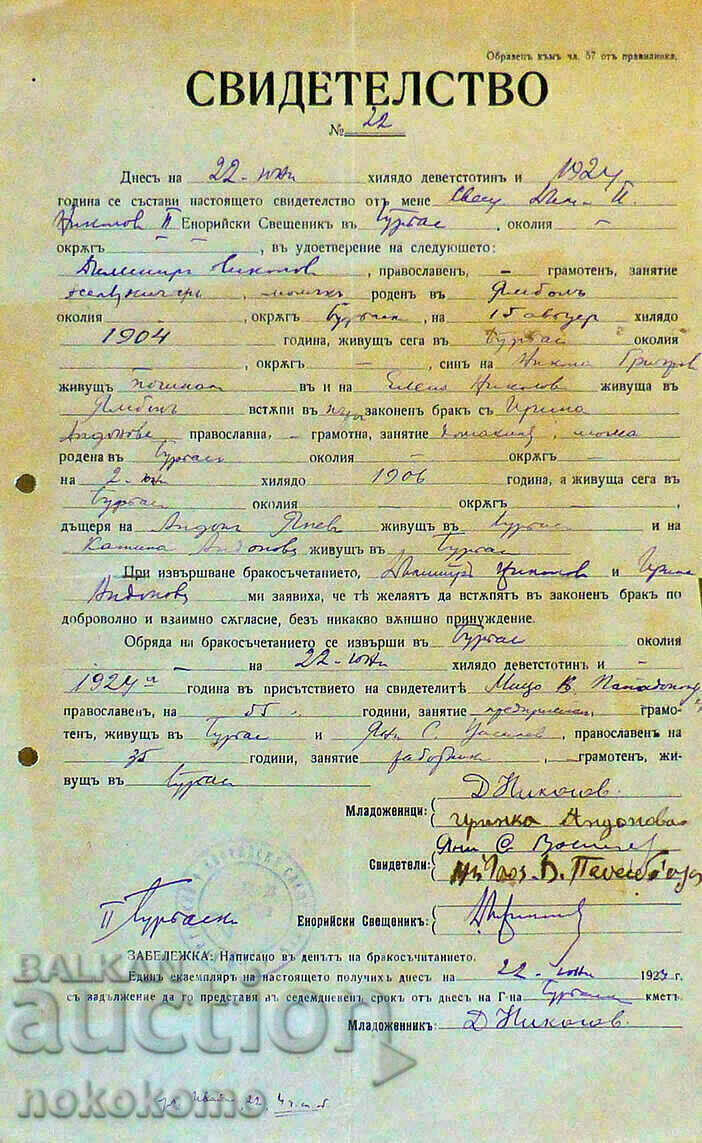 Образецъ къмъ чл. 57 отъ правилника.
СВИДЕТЕЛСТВО
№ 22
Днесъ на 22-юни хилядо деветстотин и 1924
година се състави настоящето свидетелство отъ мене Свещ
Николов II Енорийски Свещеникъ въ Бургас, околия –
окрѫгъ – –, въ удостоверение на следующето:
Димитъръ Николовъ, православен, – грамотен, занятие
, момъкъ роденъ въ Ямболъ
околия –, окрѫгъ Бургаски, на 15 хилядо
1904 година, живущъ сега въ Бургас околия
–, окрѫгъ –, синъ на Никола
живущъ починал въ и на Елена Николова живуща въ
Ямболъ встѫпи въ законенъ бракъ съ Ирина
Андонова православна, – грамотна, занятие домакиня, мома
родена въ Бургасъ околия – окрѫгъ –
на 2-юни хилядо 1906 година, а живуща сега въ
Бургасъ околия – окрѫгъ –
дъщеря на Андонъ Янев живущъ въ Бургас и на
Катина Андонова живущъ въ Бургас
При извършване бракосъчетанието, Димитър Николов и Ирина
Андонова ми заявиха, че тѣ желаятъ да встѫпятъ въ законенъ бракъ по
доброволно и взаимно съгласие, безъ никакво външно принуждение.
Обряда на бракосъчетанието се извърши въ Бургас околия
– на 22-юни хилядо деветстотинъ и –
1924 година въ присътствието на свидетелитѣ Мицо В.
православенъ, на 55 години, занятие предприемач, грамо-
тенъ, живущъ въ Бургас и Яни С. Василев, православенъ на
35 години, занятие работник, – грамотенъ, жи-
вущъ въ Бургас
Младоженци: Д Николов.
Иринка Андонова
Яни С. Василев
Свидетели:
II Бургаски Енорийски Свещеникъ:
ЗАБЕЛЕЖКА: Написано въ денътъ на бракосъчетанието.
Единъ екземпляръ на настоящето получихъ днесъ на 22-юни 1924 г.
съ задължение да го представя въ седемдневенъ срокъ отъ днесъ на Г-на Бургаски кметъ.
Младоженникъ: Д Николов.
BALKAN
auction
nokokomo